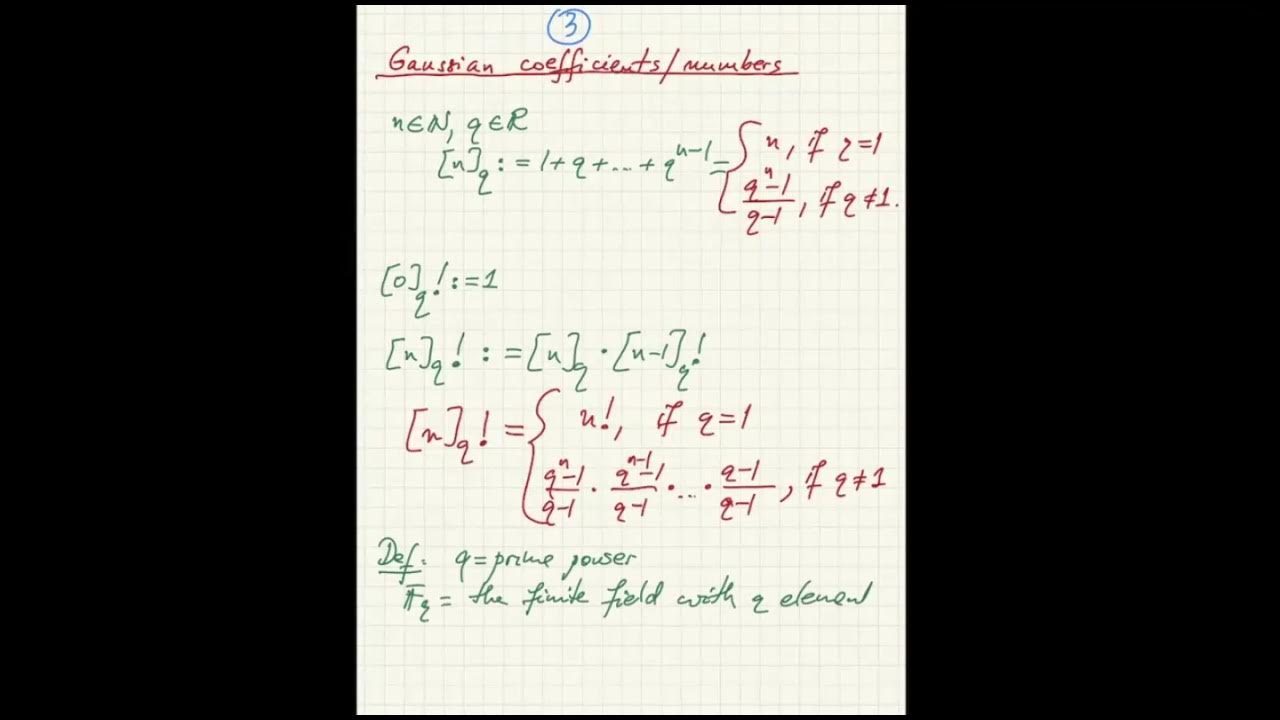 3
Gaussian coefficients/numbers
n∈N, q∈R
[n]_q := 1+q+...+q^{n-1} = { n, if q=1
(q^n-1)/(q-1), if q≠1.
[0]_q! := 1
[n]_q! := [n]_q · [n-1]_q!
[n]_q! = { n!, if q=1
(q^n-1)/(q-1) · (q^{n-1}-1)/(q-1) · ... · (q-1)/(q-1), if q≠1
Def: q=prime power
F_q = the finite field with q element